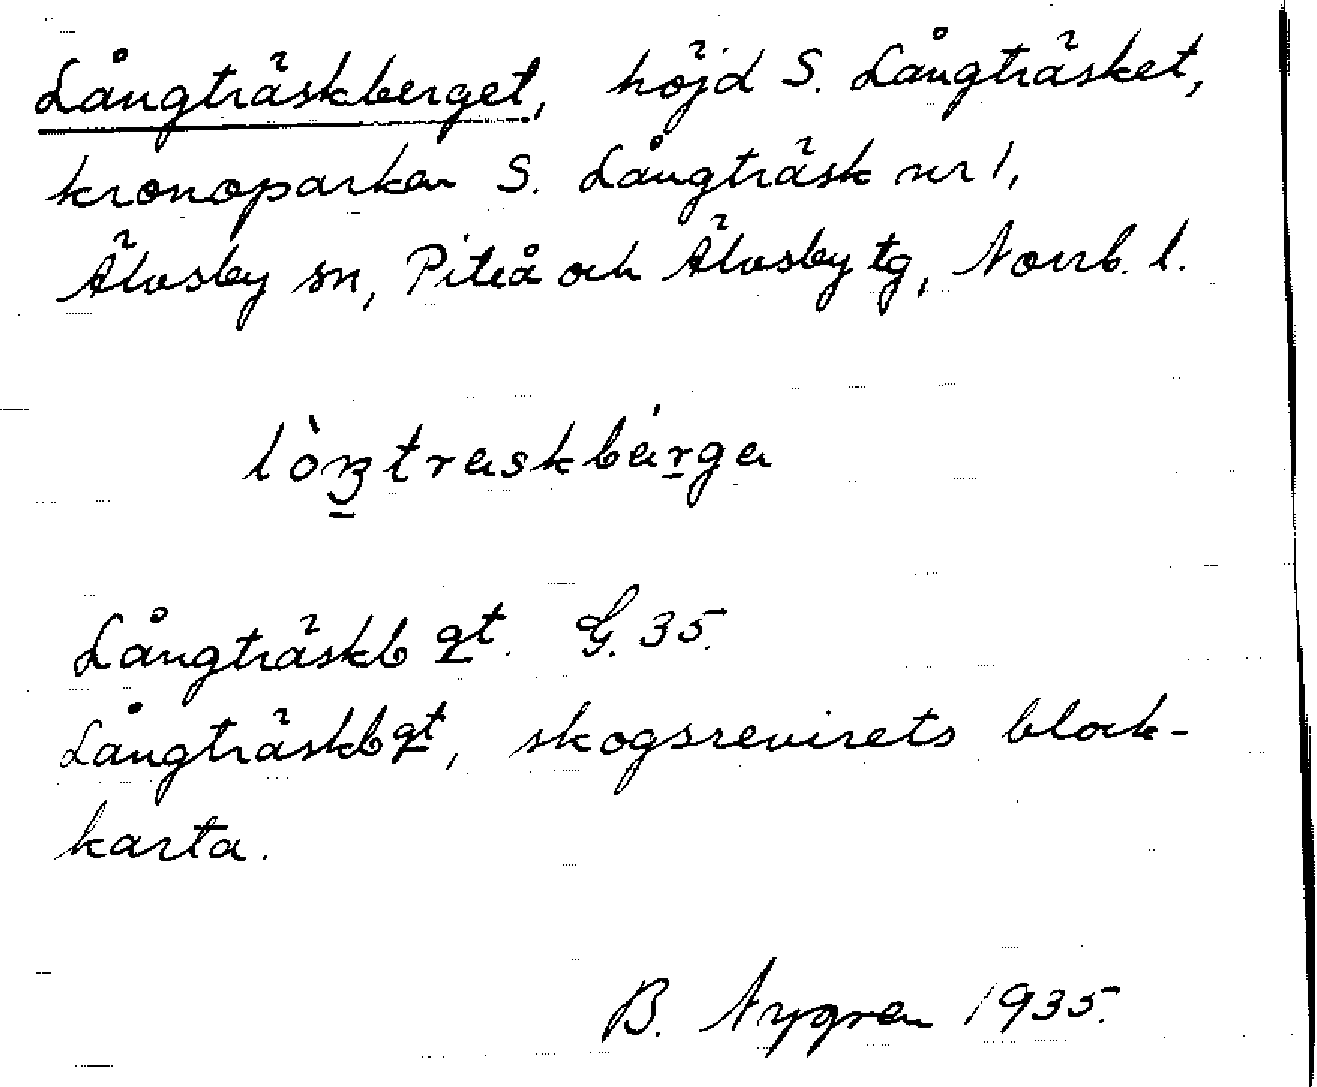 Långträskberget, höjd S. Långträsket,
kronoparken S. Långträsk nr 1,
Älvsby sn, Piteå och Älvsby tg, Norrb. l.
lòŋtraskbárga
Långträskb gt. G. 35.
Långträskbgt, skogsrevirets block-
karta.
B. Nygren 1935.